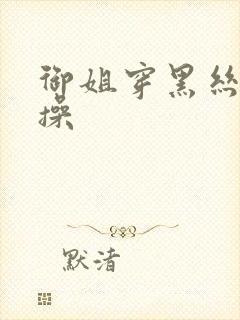 御姐穿黑丝
操
默渚